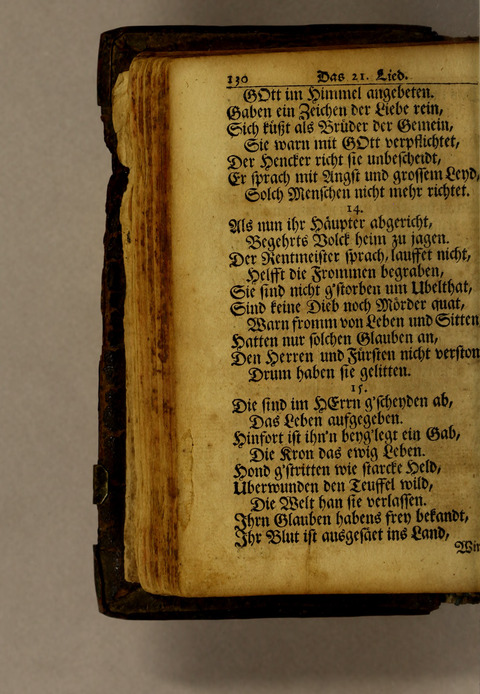 130 Das 21. Lied.
GOtt im Himmel angebeten.
Gaben ein Zeichen der Liebe rein,
Sich küßt als Brüder der Gemein,
Sie warn mit GOtt verpflichtet,
Der Hencker richt sie unbescheidt,
Er sprach mit Angst und grossem Leyd,
Solch Menschen nicht mehr richtet.
14.
Als nun ihr Häupter abgericht,
Begehrts Volck heim zu jagen.
Der Rentmeister sprach, lauffet nicht,
Helfft die Frommen begraben,
Sie sind nicht g'storben um Ubelthat,
Sind keine Dieb noch Mörder quat,
Warn fromm von Leben und Sitten,
Hatten nur solchen Glauben an,
Den Herren und Fürsten nicht verston
Drum haben sie gelitten.
15.
Die sind im HErrn g'scheyden ab,
Das Leben aufgegeben.
Hinfort ist ihn'n beyg'legt ein Gab,
Die Kron das ewig Leben.
Hond g'stritten wie starcke Held,
Uberwunden den Teuffel wild,
Die Welt han sie verlassen.
Ihrn Glauben habens frey bekandt,
Ihr Blut ist ausgesäet ins Land,
Wir